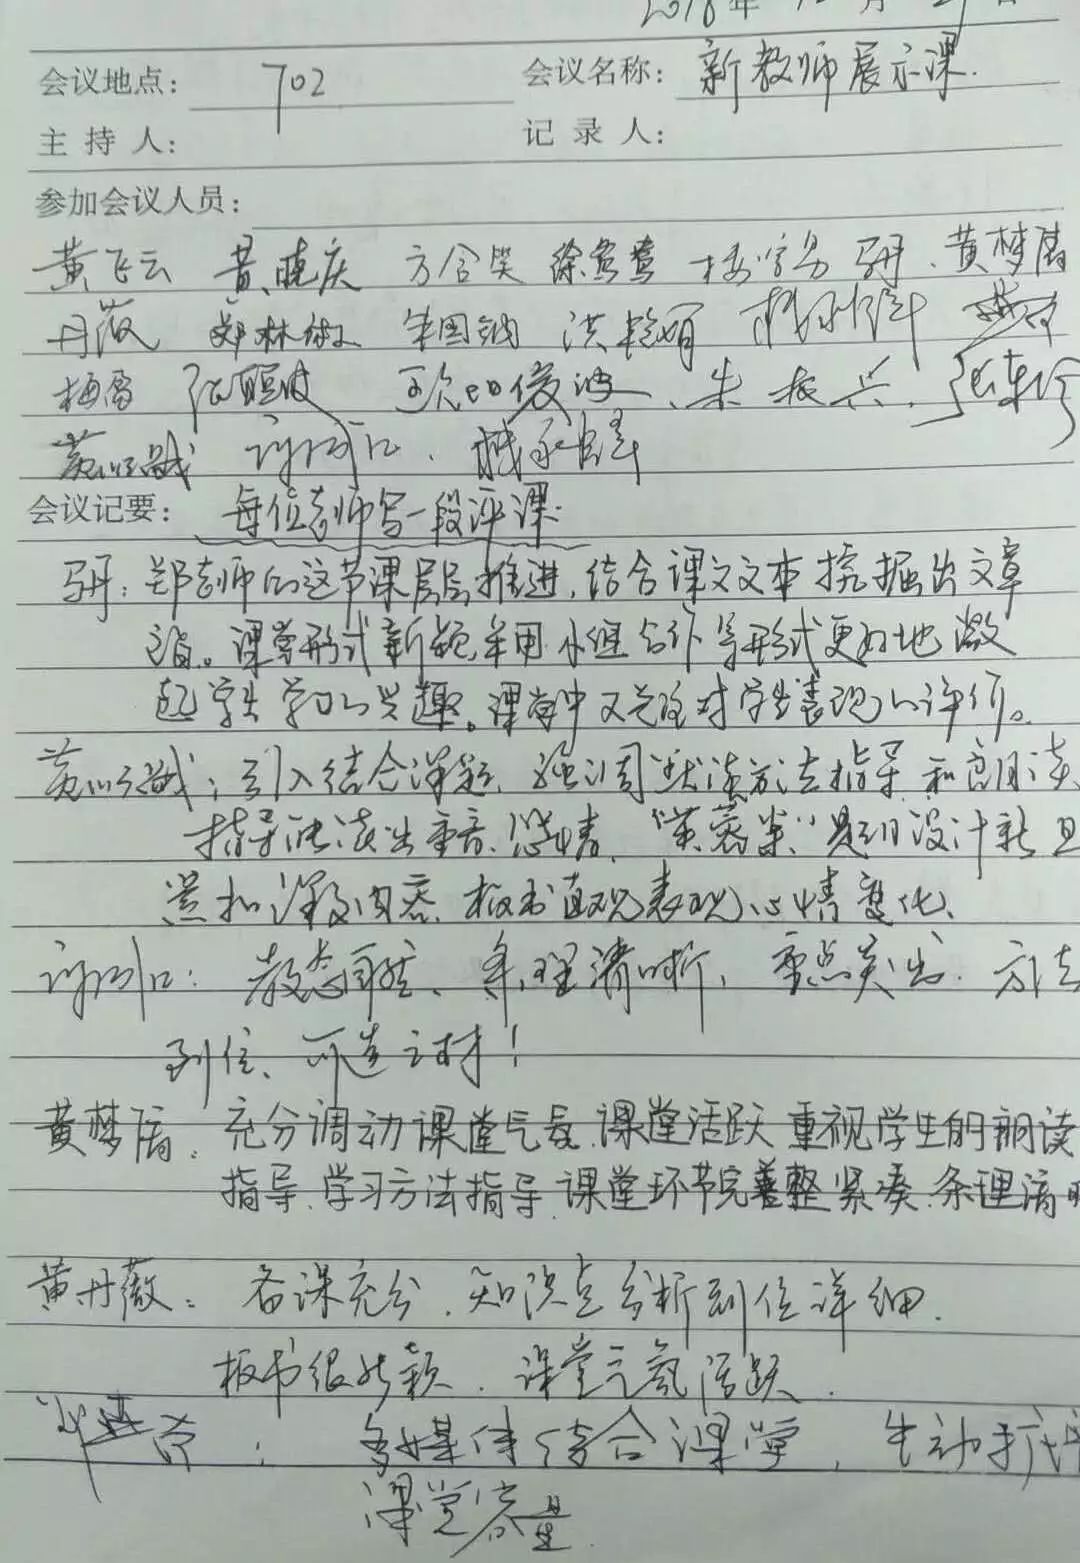 2018年
会议地点: 702 会议名称: 新教师展示课.
主持人: 记录人:
参加会议人员:
黄飞云 黄晓庆 方含笑 徐鸳鸯 黄梦眉
丹薇 郑林 洪艳眉
梅雪 欧阳俊波、朱振兴、张
会议记要: 每位老师写一段评课.
郑老师的这节课层层推进,结合课文文本挖掘出文章
主旨。课堂形式新颖,采用小组合作等形式更好地激
起学生学习的兴趣。课堂中又关注对学生表现的评价。
引入结合课题,强调默读方法指导和朗读
指导让读出重音、感情,"芙蓉楼"题目设计新且
紧扣课文内容,板书直观表现心情变化、
教态自然、条理清晰,重点突出、方法
到位、可造之材!
黄梦眉: 充分调动课堂气氛,课堂活跃 重视学生的朗读
指导、学习方法指导,课堂环节完善整紧凑、条理清晰
黄丹薇: 备课充分,知识点分析到位详细.
板书很新颖,课堂气氛活跃.
: 多媒体结合课堂,生动扩充
课堂容量